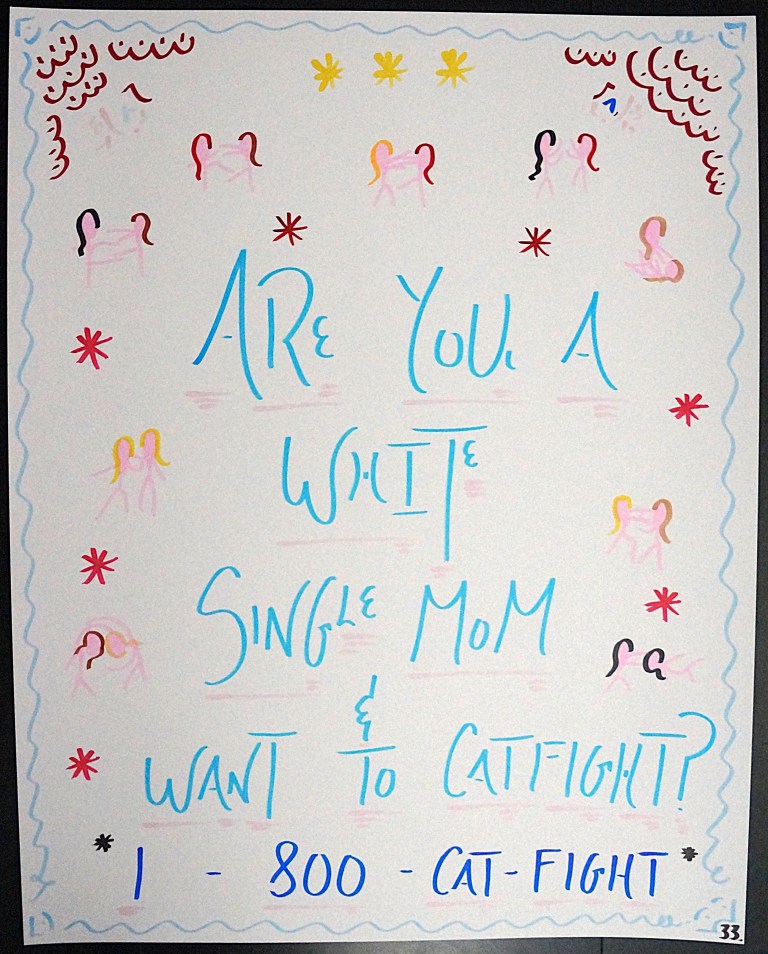 ARE YOU A
WHITE
SINGLE MOM
&
WANT TO CATFIGHT?
* 1 - 800 - CAT - FIGHT *
33.